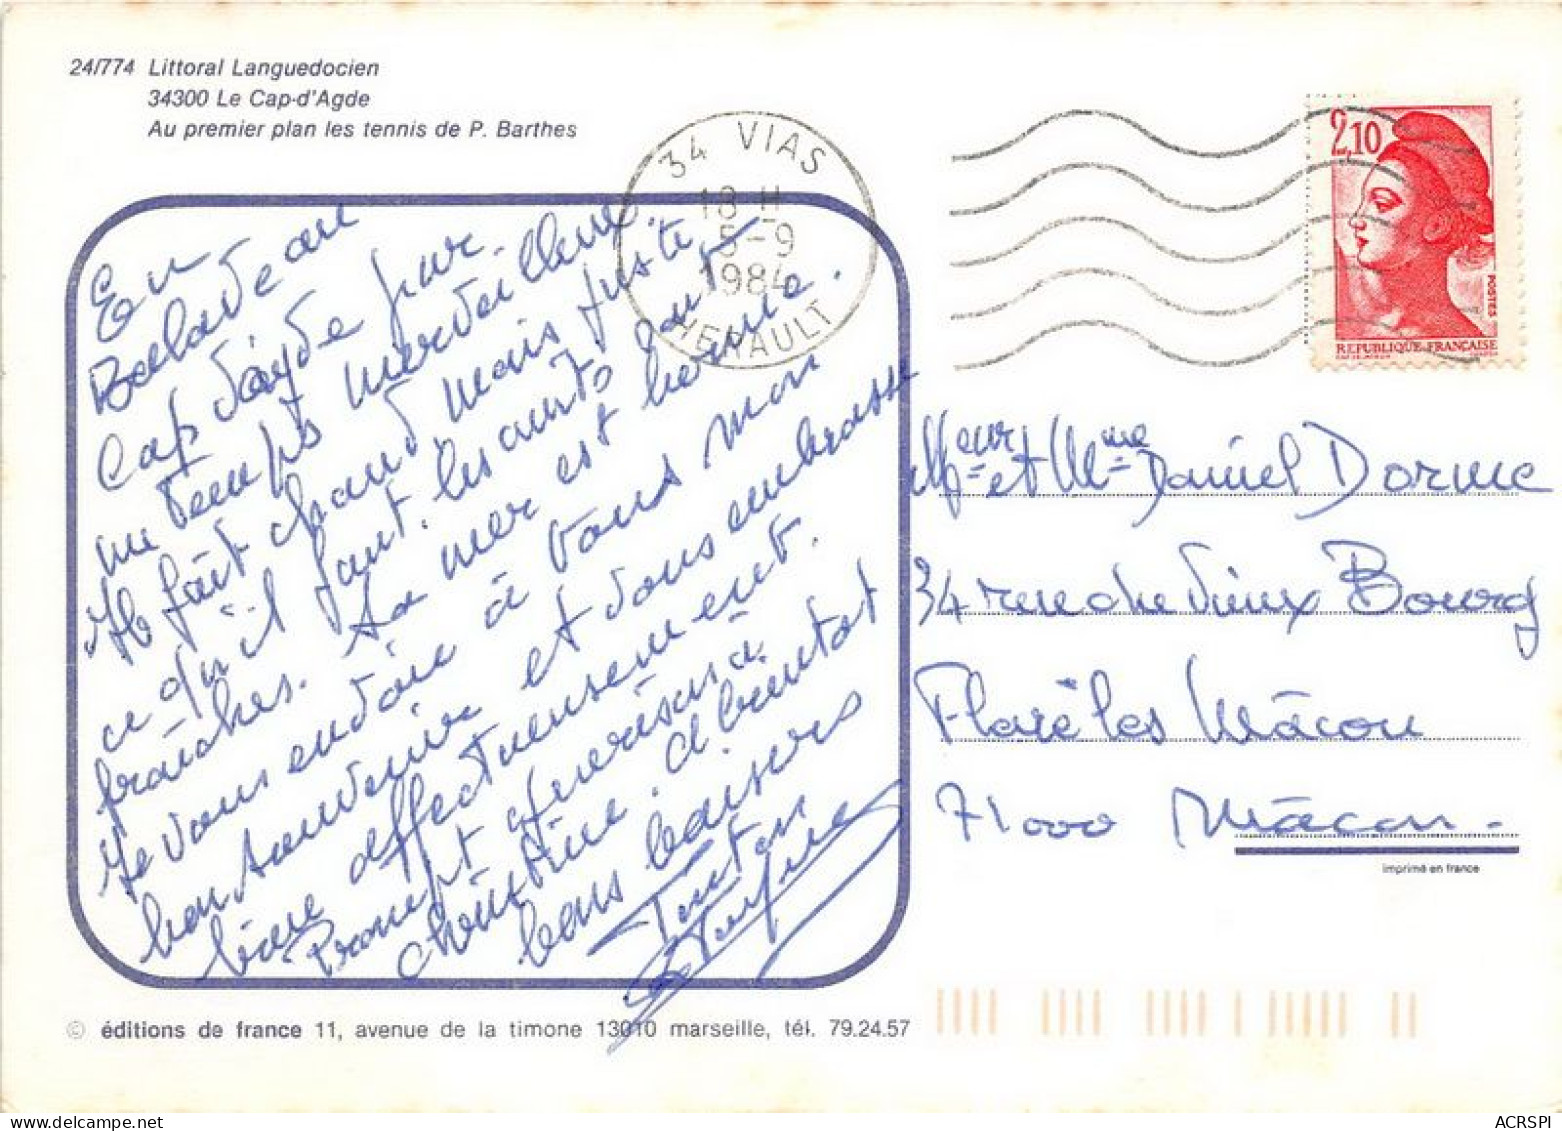 24/774 Littoral Languedocien
34300 Le Cap-d'Agde
Au premier plan les tennis de P. Barthes
34 VIAS
18 H
5-9
1984
HERAULT
2,10
POSTES
REPUBLIQUE FRANÇAISE
En
Balade au
Cap d'Agde par
un temps merveilleux.
Il fait chaud mais juste
ce qu'il faut. les nuits sont
fraîches. La mer est bonne.
Je vous envoie à tous mon
bon souvenir et vous embrasse
bien affectueusement.
Prompt guérison à
Christine. A bientôt
bons baisers
Tonton
Meur et Mme Daniel Dorme
34 rue du Vieux Bourg
Flacé les Mâcon
71000 Mâcon.
imprimé en france
© éditions de france 11, avenue de la timone 13010 marseille, tél. 79.24.57
ACRSPI